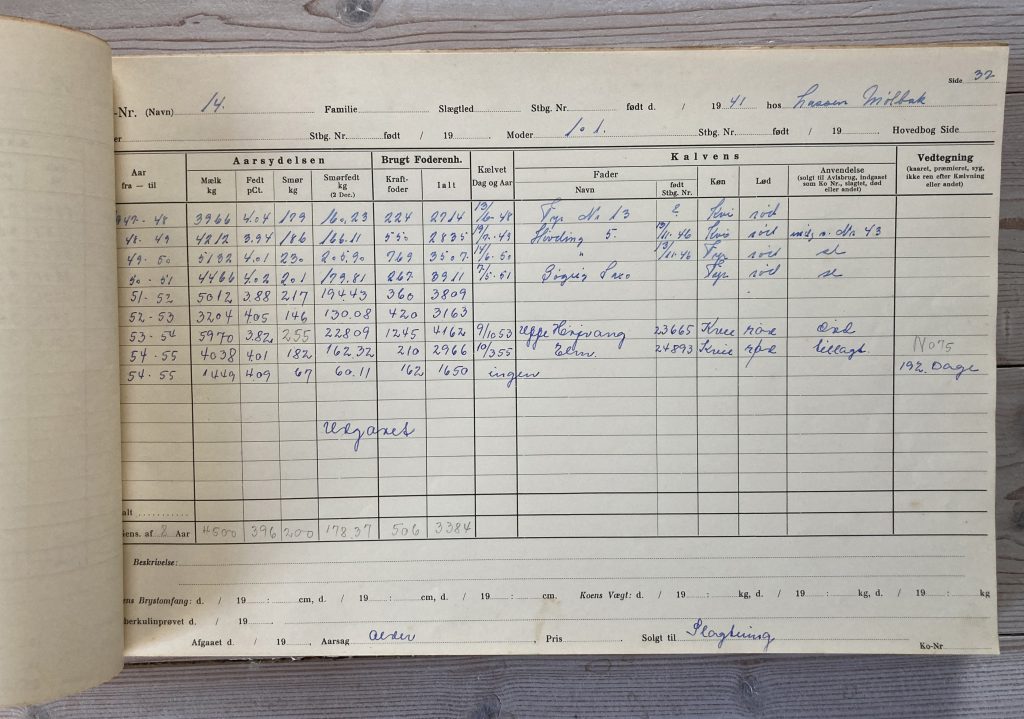 Side 32
-Nr. (Navn) 14. Familie Slægtled Stbg. Nr. født d. / 1941 hos Lassen Mølbak
er Stbg. Nr. født / 19 Moder 101. Stbg. Nr. født / 19 Hovedbog Side
Aar fra — til Aarsydelsen Brugt Foderenh. Kælvet Dag og Aar Kalvens Vedtegning
(kaaret, præmieret, syg, ikke ren efter Kælvning eller andet)
Mælk kg Fedt pCt. Smør kg Smørfedt kg (2 Dec.) Kraft-foder Ialt Fader Navn født Stbg. Nr. Køn Lød Anvendelse (solgt til Avlsbrug, indgaaet som Ko Nr., slagtet, død eller andet)
947-48 3966 4.04 179 160,23 224 2714 13/6-48 Tyr Nr 13 Kvi rød
48-49 4212 3.94 186 166.11 550 2835 19/7-49 Høvding 5. 13/11-46 Kvi rød Nr 43
49-50 5132 4.01 230 205.90 769 3507 14/6-50 " 13/11-46 Tyr rød sl
50-51 4466 4.02 201 179.81 267 3911 7/5-51 Tyr rød sl
51-52 5012 3.88 217 194.43 360 3809
52-53 3204 4.05 146 130.08 420 3163
53-54 5970 3.82 255 22809 1245 4162 9/10 53 Uffe Højvang 23665 Kvie rød Død
54-55 4038 4.01 182 162.32 210 2966 10/3 55 Elm. 24893 Kvie rød tillagt No 75
54-55 1449 4.09 67 60.11 162 1650 ingen 192. Dage
Udgaaet
alt
iens. af 8 Aar 4500 396 200 178.37 506 3384
Beskrivelse:
ens Brystomfang: d. / 19 : cm, d. / 19 : cm, d. / 19 : cm. Koens Vægt: d. / 19 : kg, d. / 19 : kg, d. / 19 : kg
berkulinprøvet d. / 19
Afgaaet d. / 19 , Aarsag Alder , Pris Solgt til Slagtning
Ko-Nr